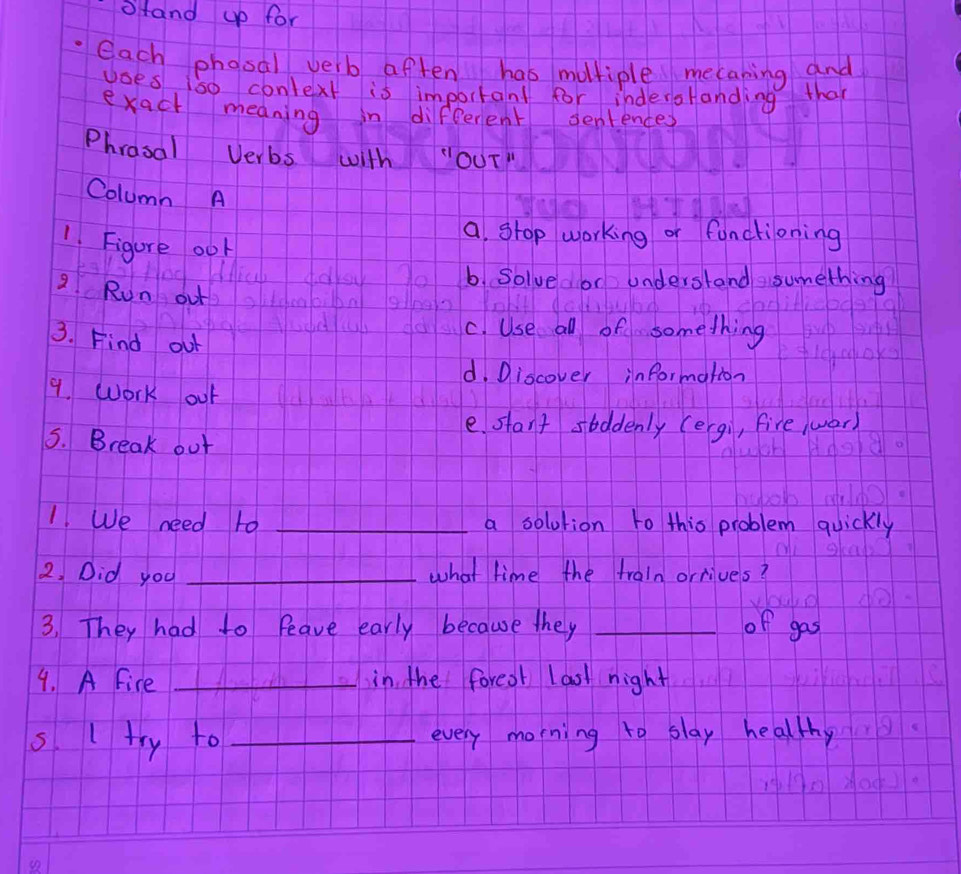 Stand up for
• Each phosal verb aften has moltiple mecaning and
uses iso context is important for inderstanding thar
exact meaning in different sentences
Phrasal Verbs with "OUT"
Column A
1. Figure oot
a. Stop working or fonctioning
2. Run out
b. Solve or understand sumething
3. Find out
c. Use all of something
d. Discover information
4. Work out
e. start sbddenly (ergi, fire, war)
5. Break out
1. We need to ____ a solution to this problem quickly
2. Did you ____ what time the train orrives?
3. They had to Peave early becawse they ____ of gas
4. A fire ____ in the forest last night
5. I try to ____ every morning to stay healthy